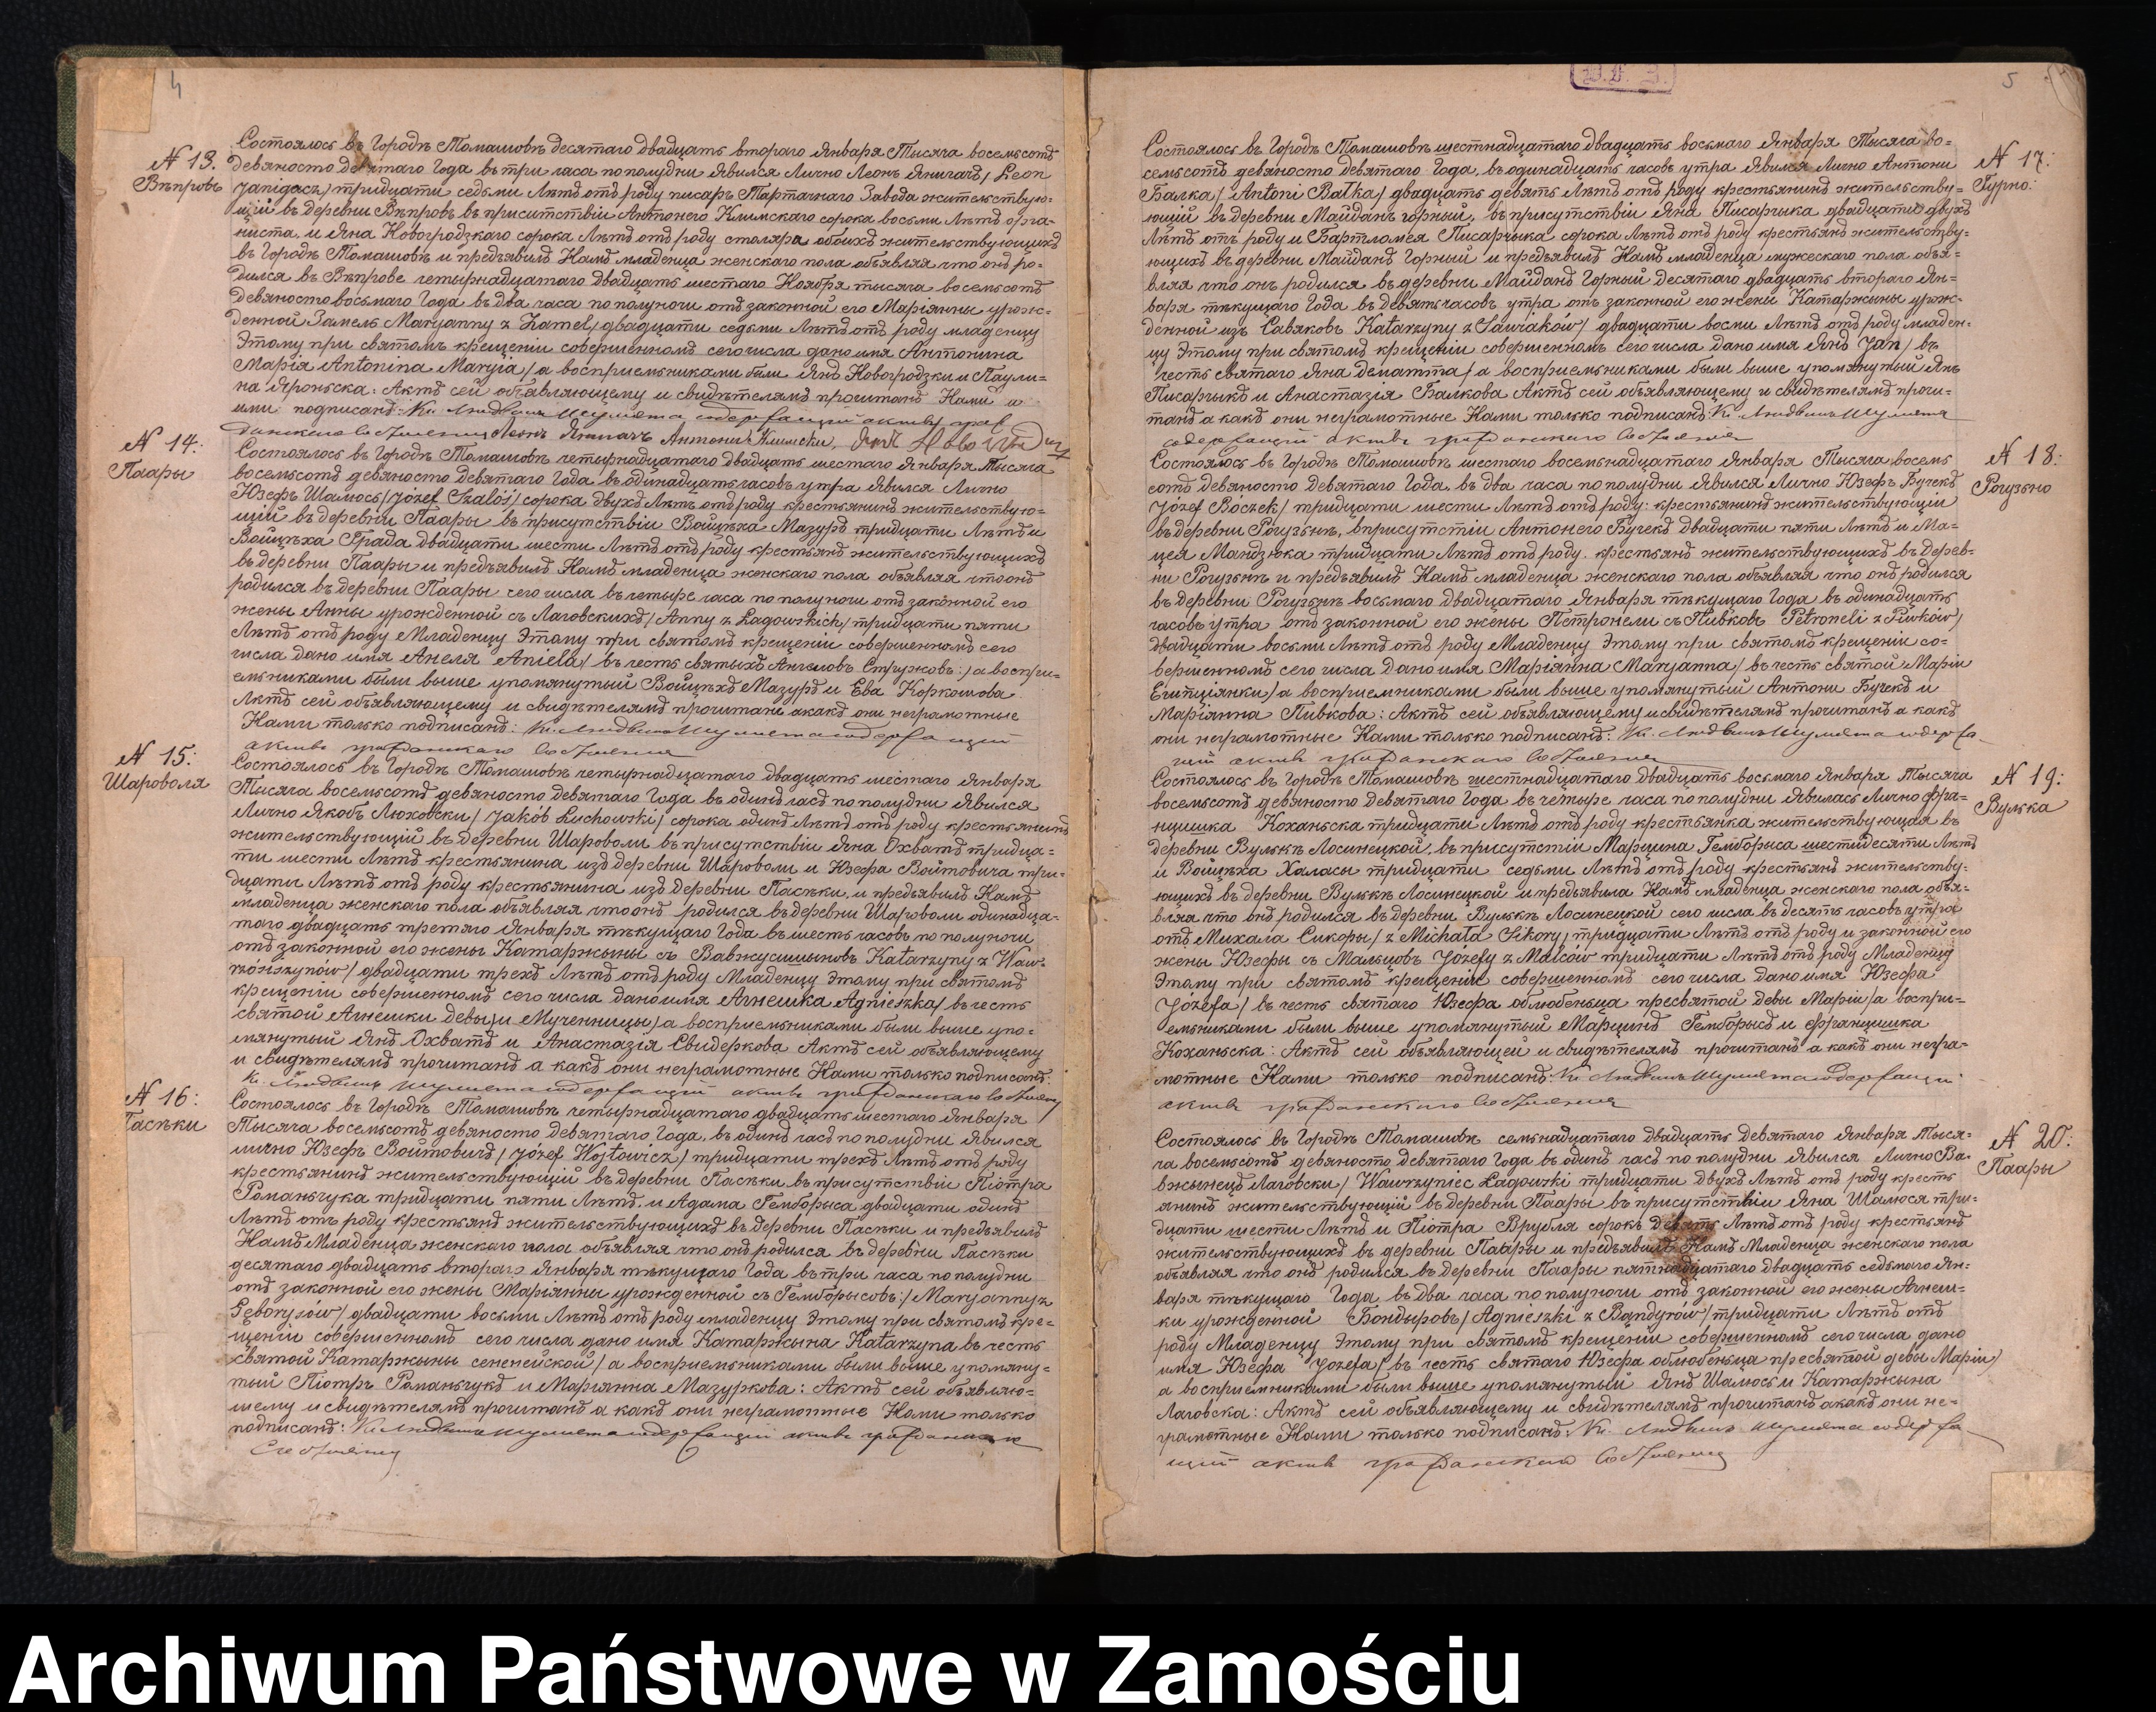 4
N 13.
Вѣпровъ
Состоялось въ Городѣ Томашовѣ десятаго двадцать втораго Января Тысяча восемьсотъ
девяносто девятаго Года въ три часа по полудни явился Лично Леонъ Яничачъ /Leon
Janigacz/ тридцати седьми Лѣтъ отъ роду писарь Тартачнаго Завода жительствую-
щій въ деревни Вѣпровъ въ присутствіи Антонего Климскаго сорока восьми Лѣтъ орга-
ниста, и Яна Новогродзкаго сорока Лѣтъ отъ роду столяра обоихъ жительствующихъ
въ Городѣ Томашовѣ и предъявилъ Намъ младенца женскаго пола объявляя что онъ ро-
дился въ Вѣпрове четырнадцатаго двадцать шестаго Ноября тысяча восемьсотъ
девяносто восьмаго Года въ два часа по полуночи отъ законной его Маріянны урож-
денной Замель Maryanny z Zamel/ двадцати седьми Лѣтъ отъ роду младенцу
Этому при святомъ крещеніи совершенномъ сего числа дано имя Антонина
Марія Antonina Maryja/ а восприемьниками были Янъ Новогродзки и Паули-
на Яроньска: Актъ сей объявляющему и свидѣтелямъ прочитанъ Нами и
ими подписанъ: Кс. Людвикъ Шулмета содержащій акты граж
данскаго Состоянія Леонъ Яничачъ Антони Климски, Янъ Новогродзки
N 14:
Паары
Состоялось въ Городѣ Томашовѣ четырнадцатаго двадцать шестаго Января Тысяча
восемьсотъ девяносто девятаго Года въ одинадцать часовъ утра явился Лично
Юзефъ Шалюсь /Józef Szaloś/ сорока двухъ Лѣтъ отъ роду крестьянинъ жительствую-
щій въ деревни Паары въ присутствіи Войцѣха Мазуръ тридцати Лѣтъ и
Войцѣха Града двадцати шести Лѣтъ отъ роду крестьянъ жительствующихъ
въ деревни Паары и предъявилъ Намъ младенца женскаго пола объявляя что онъ
родился въ деревни Паары сего числа въ четыре часа по полуночи отъ законной его
жены Анны урожденной съ Лаговскихъ /Anny z Łagowskich/ тридцати пяти
Лѣтъ отъ роду Младенцу Этому при святомъ крещеніи совершенномъ сего
числа дано имя Анеля Aniela/ въ честь святыхъ Ангеловъ Стружовъ:/ а воспри-
емьниками были выше упомянутый Войцѣхъ Мазуръ и Ева Коркошова
Актъ сей объявляющему и свидѣтелямъ прочитанъ а какъ они неграмотные
Нами только подписанъ: Кс. Людвикъ Шулмета содержащій
акты гражданскаго Состоянія
N 15:
Шароволя
Состоялось въ Городѣ Томашовѣ четырнадцатаго двадцать шестаго Января
Тысяча восемьсотъ девяносто девятаго Года въ одинъ часъ по полудни явился
Лично Якобъ Люховски /Jakób Luchowski/ сорока одинъ Лѣтъ отъ роду крестьянинъ
жительствующій въ деревни Шароволи въ присутствіи Яна Охватъ тридца-
ти шести Лѣтъ крестьянина изъ деревни Шароволи и Юзефа Войтовича три-
дцати Лѣтъ отъ роду крестьянина изъ деревни Пасѣки, и предъявилъ Намъ
младенца женскаго пола объявляя что онъ родился въ деревни Шароволи одинадца-
таго двадцать третяго Января тѣкущаго Года въ шесть часовъ по полуночи
отъ законной его жены Катаржыны съ Вавжусишыновъ Katarzyny z Waw-
rzóńszynów/ двадцати трехъ Лѣтъ отъ роду Младенцу Этому при святомъ
крещеніи совершенномъ сего числа дано имя Агнешка Agnieszka/ въ честь
святой Агнешки девы и Мученницы/ а восприемьниками были выше упо-
мянутый Янъ Охватъ и Анастазія Свидеркова Актъ сей объявляющему
и свидѣтелямъ прочитанъ а какъ они неграмотные Нами только подписанъ:
Кс. Людвикъ Шулмета содержащій акты гражданскаго Состоянія
N 16:
Пасѣки
Состоялось въ Городѣ Томашовѣ четырнадцатаго двадцать шестаго Января
Тысяча восемьсотъ девяносто девятаго Года, въ одинъ часъ по полудни явился
лично Юзефъ Войтовичъ /Józef Wojtowicz/ тридцати трехъ Лѣтъ отъ роду
крестьянинъ жительствующій въ деревни Пасѣки въ присутствіи Піотра
Романьчука тридцати пяти Лѣтъ, и Адама Гемборыса двадцати одинъ
Лѣтъ отъ роду крестьянъ жительствующихъ въ деревни Пасѣки и предъявилъ
Намъ Младенца женскаго пола объявляя что онъ родился въ деревни Пасѣки
десятаго двадцать втораго Января тѣкущаго Года въ три часа по полудни
отъ законной его жены Маріянны урожденной съ Гемборысовъ:/ Maryanny z
Gęborysów/ двадцати восьми Лѣтъ отъ роду младенцу Этому при святомъ кре-
щеніи совершенномъ сего числа дано имя Катаржына Katarzyna въ честь
святой Катаржыны сененейской/ а восприемьниками были выше упомяну-
тый Піотръ Романьчукъ и Маріянна Мазуркова: Актъ сей объявляю-
щему и свидѣтелямъ прочитанъ а какъ они неграмотные Нами только
подписанъ: Кс. Людвикъ Шулмета содержащій акты гражданск
Состоянія
5
N 17:
Гурно:
Состоялось въ Городѣ Томашовѣ шестнадцатаго двадцать восьмаго Января Тысяча во-
семьсотъ девяносто девятаго Года, въ одинадцать часовъ утра явился Лично Антони
Балка/ Antoni Bałka/ двадцать девять Лѣтъ отъ роду крестьянинъ жительству-
ющій въ деревни Майданъ горный, въ присутствіи Яна Писарчыка двадцати двухъ
Лѣтъ отъ роду и Бартломея Писарчыка сорока Лѣтъ отъ роду крестьянъ жительству-
ющихъ въ деревни Майданъ Горный и предъявилъ Намъ младенца мужескаго пола объя-
вляя что онъ родился въ деревни Майданъ Горный десятаго двадцать втораго Ян-
варя тѣкущаго Года въ девять часовъ утра отъ законной его жены Катаржыны урож-
денной изъ Савяковъ Katarzyny z Sawiaków/ двадцати восми Лѣтъ отъ роду младен-
цу Этому при святомъ крещеніи совершенномъ сего числа дано имя Янъ Jan/ въ
честь святаго Яна Дематта/ а восприемьниками были выше упомянутый Янъ
Писарчыкъ и Анастазія Балкова Актъ сей объявляющему и свидѣтелямъ прочи-
танъ а какъ они неграмотные Нами только подписанъ: Кс. Людвикъ Шулмета
содержащій акты гражданскаго Состоянія
N 18:
Рогузьно
Состоялось въ Городѣ Томашовѣ шестаго восемьнадцатаго Января Тысяча восемь
сотъ девяносто девятаго Года, въ два часа по полудни явился Лично Юзефъ Бучекъ
Józef Bóczek/ тридцати шести Лѣтъ отъ роду: крестьянинъ жительствующій
въ деревни Рогузьнѣ, вприсутстіи Антонего Бучекъ двадцати пяти Лѣтъ и Ма-
цея Мандзюка тридцати Лѣтъ отъ роду. крестьянъ жительствующихъ въ дерев-
ни Рогузьнѣ и предъявилъ Намъ младенца женскаго пола объявляя что онъ родился
въ деревни Рогузьнѣ восьмаго двадцатаго Января тѣкущаго Года въ одинадцать
часовъ утра отъ законной его жены Петронели съ Пивковъ Petroneli z Piwków/
двадцати восьми Лѣтъ отъ роду Младенцу Этому при святомъ крещеніи со-
вершенномъ сего числа дано имя Маріянна Maryanna/ въ честь святой Маріи
Египціянки/ а восприемниками были выше упомянутый Антони Бучекъ и
Маріянна Пивкова: Актъ сей объявляющему и свидѣтелямъ прочитанъ а какъ
они неграмотные Нами только подписанъ: Кс. Людвикъ Шулмета содержа-
щій акты гражданскаго Состоянія
N 19:
Вулька
Состоялось въ Городѣ Томашовѣ шестнадцатаго двадцать восьмаго Января Тысяча
восемьсотъ девяносто девятаго Года въ четыре часа по полудни явилась Лично Фра-
нцишка Коханьска тридцати Лѣтъ отъ роду крестьянка жительствующая въ
деревни Вулькѣ Лосинецкой, въ присутстіи Марцина Гемборыса шестидесяти Лѣтъ
и Войцѣха Халасы тридцати седьми Лѣтъ отъ роду крестьянъ жительству-
ющихъ въ деревни Вулькѣ Лосинецкой и предъявила Намъ младенца женскаго пола объя-
вляя что онъ родился въ деревни Вулькѣ Лосинецкой сего числа въ десять часовъ утра
отъ Михала Сикоры/ z Michała Sikory/ тридцати Лѣтъ отъ роду и законной его
жены Юзефы съ Мальцовъ Józefy z Malców тридцати Лѣтъ отъ роду Младенцу
Этому при святомъ крещеніи совершенномъ сего числа дано имя Юзефа
Józefa/ въ честь святаго Юзефа облюбеньца пресвятой девы Маріи/ а воспри-
емьниками были выше упомянутый Марцинъ Гемборысъ и Францишка
Коханьска: Актъ сей объявляющей и свидѣтелямъ прочитанъ а какъ они негра-
мотные Нами только подписанъ: Кс. Людвикъ Шулмета содержащій
акты гражданскаго Состоянія
N 20:
Паары
Состоялось въ Городѣ Томашовѣ семьнадцатаго двадцать девятаго Января Тыся-
ча восемьсотъ девяносто девятаго Года въ одинъ часъ по полудни явился Лично Ва-
вжынецъ Лаговски/ Wawrzyniec Łagowski тридцати двухъ Лѣтъ отъ роду кресть
янинъ жительствующій въ деревни Паары въ присутствіи Яна Шалюся три-
дцати шести Лѣтъ и Піотра Врубля сорокъ девять Лѣтъ отъ роду крестьянъ
жительствующихъ въ деревни Паары и предъявилъ Намъ Младенца женскаго пола
объявляя что онъ родился въ деревни Паары пятнадцатаго двадцать седьмаго Ян-
варя тѣкущаго Года въ два часа по полуночи отъ законной его жены Агнеш-
ки урожденной Бондыровъ/ Agnieszki z Bandyrów/ тридцати Лѣтъ отъ
роду Младенцу Этому при святомъ крещеніи совершенномъ сего числа дано
имя Юзефа Jozefa/ въ честь святаго Юзефа облюбеньца пресвятой девы Маріи/
а восприемниками были выше упомянутый Янъ Шалюсь и Катаржына
Лаговска: Актъ сей объявляющему и свидѣтелямъ прочитанъ а какъ они не-
грамотные Нами только подписанъ: Кс. Людвикъ Шулмета содержа-
щій акты гражданскаго Состоянія
Archiwum Państwowe w Zamościu